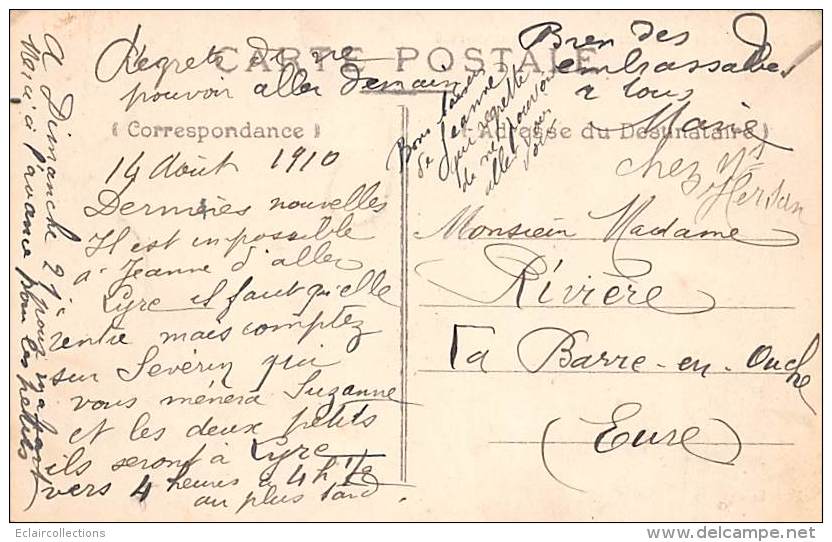 CARTE POSTALE
Regrette de ne
pouvoir aller demain
Bien des
embrassades
à tous
Marie
(Correspondance)
Adresse du Destinataire)
Bons baisers
de Jeanne
qui regrette
de ne pouvoir
aller vous
voir
14 Août 1910
Dernières nouvelles
Il est impossible
à Jeanne d'aller
Lyre il faut qu'elle
rentre mais comptez
sur Séverin qui
vous mènera Suzanne
et les deux petits
ils seront à Lyre
vers 4 heures à 4h 1/2
au plus tard.
A Dimanche 21 pour ma part
Merci à l'avance pour les petits
chez Mr
Hersan
Monsieur Madame
Rivière
La Barre-en-Ouche
(Eure)
Eclaircollections
www.delcampe.net